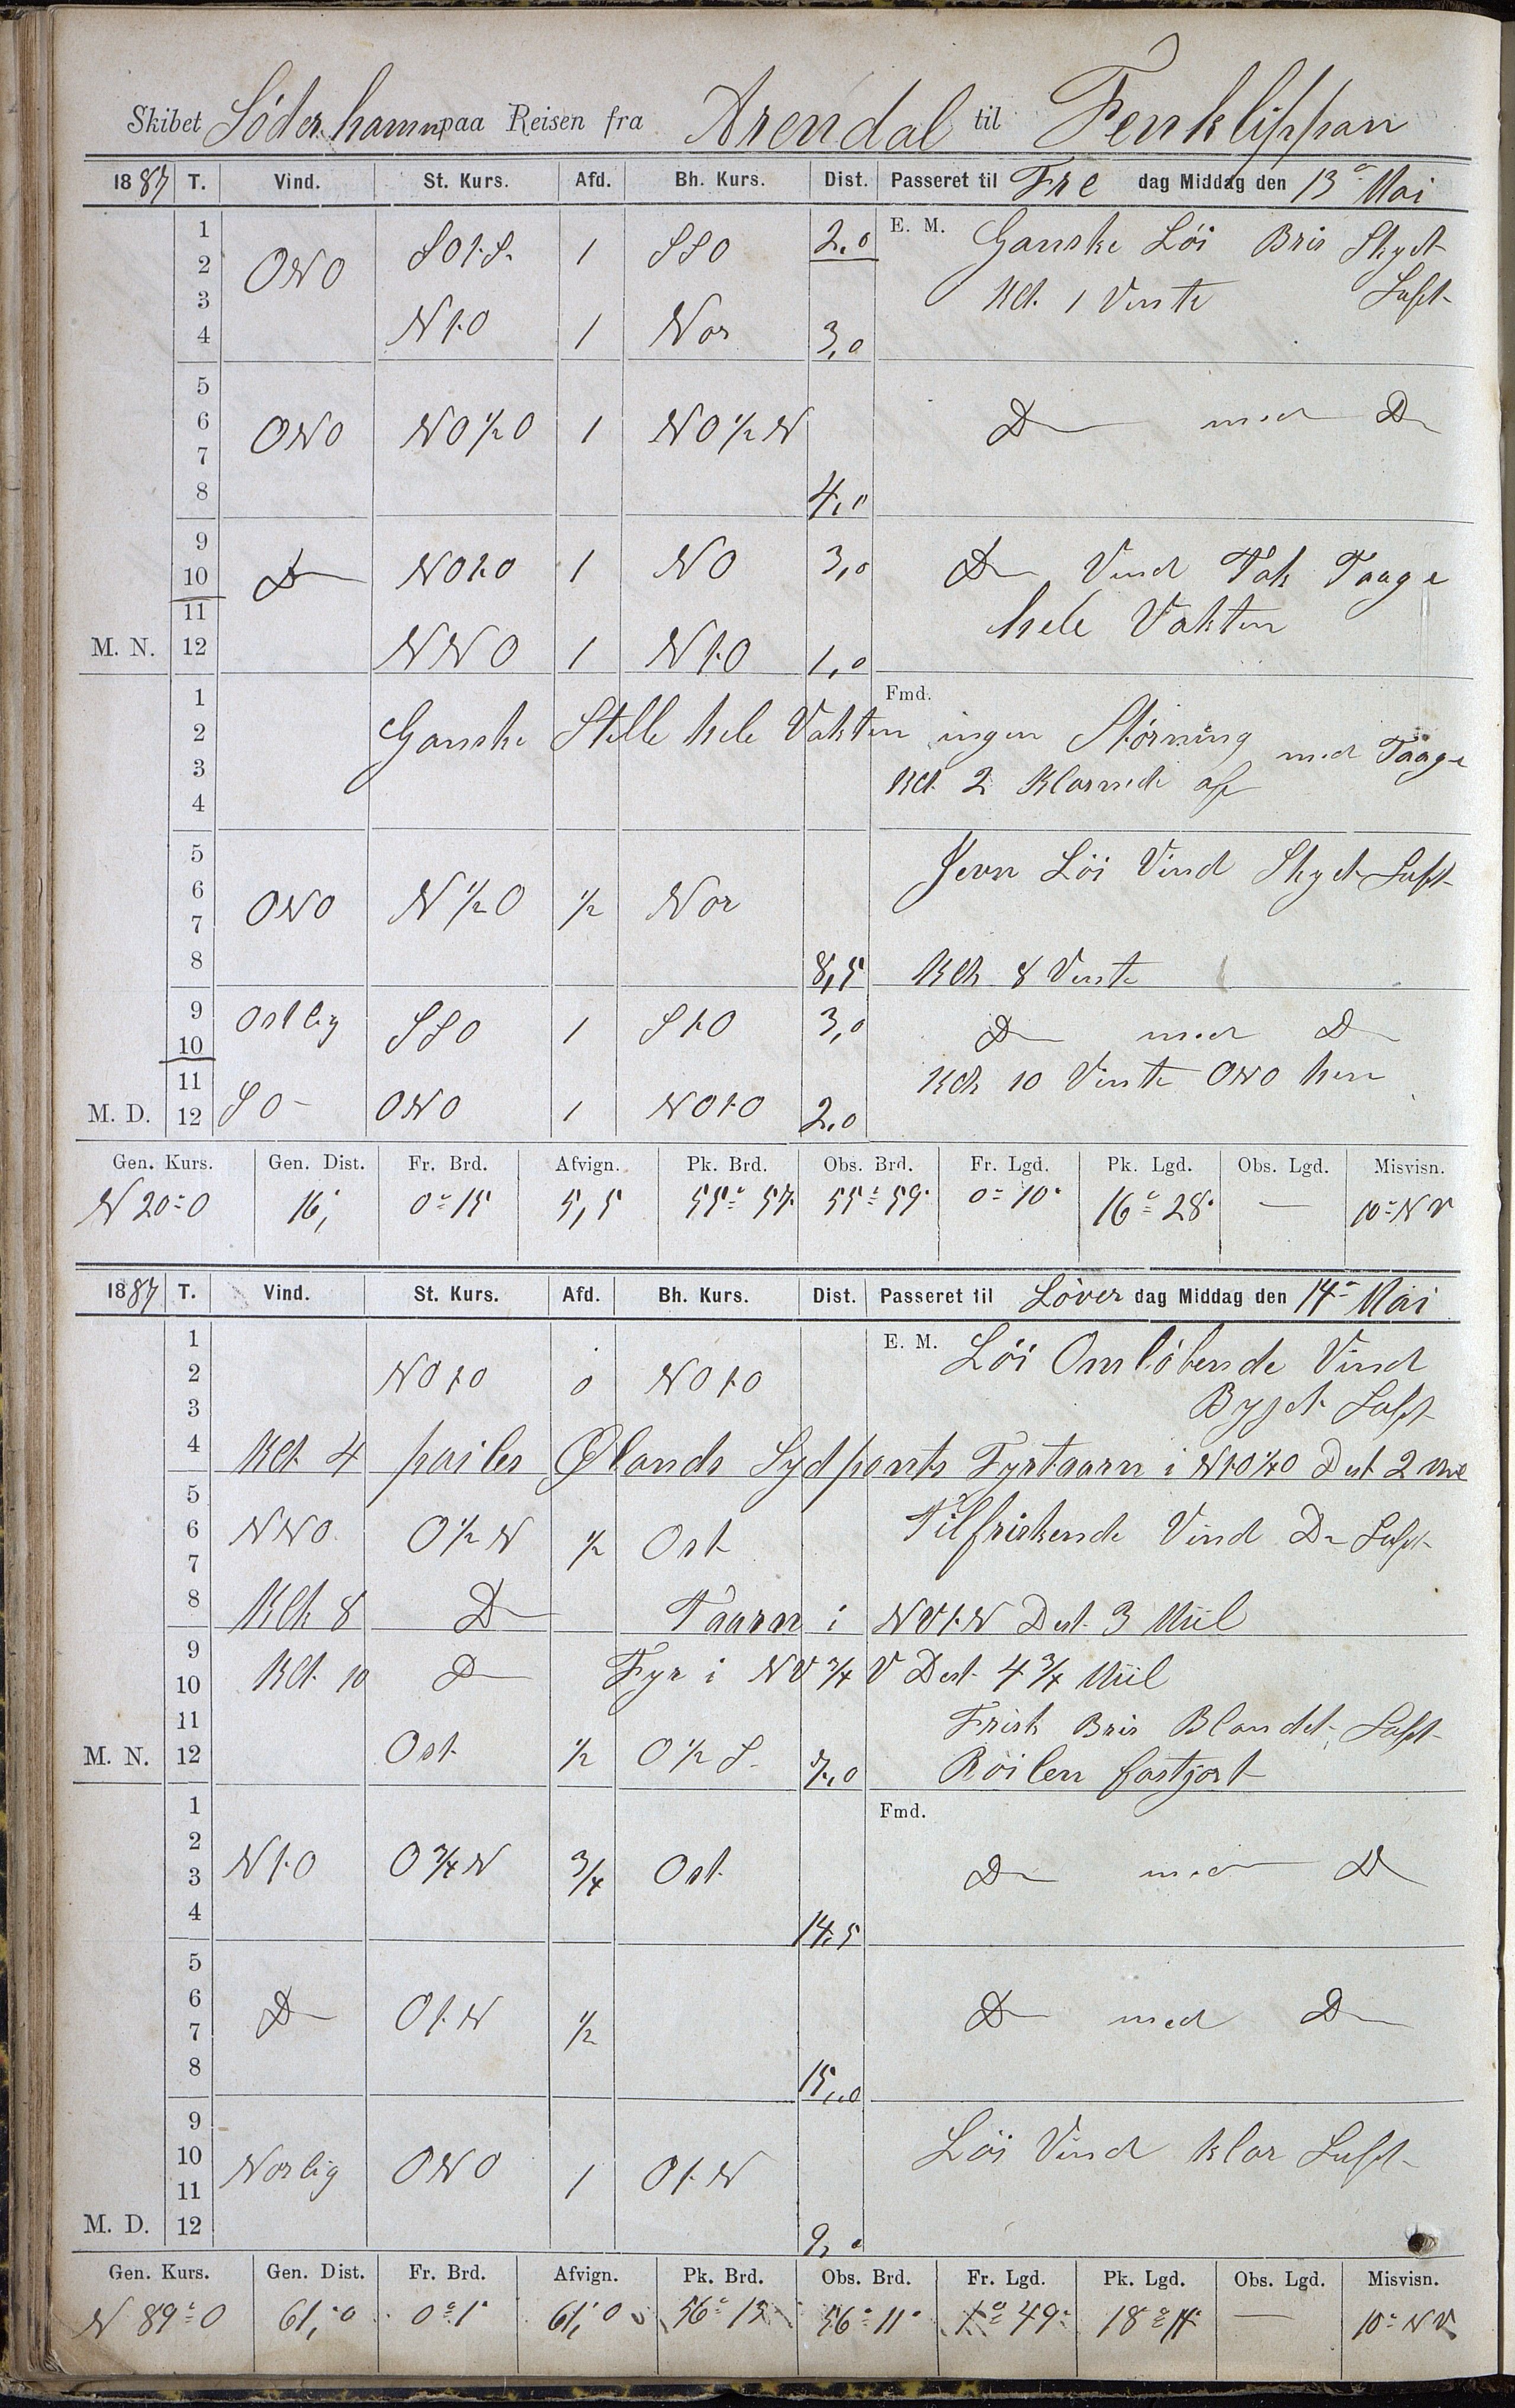 Skibet Söderhamn paa Reisen fra Arendal til Fenklippan
1887 T. Vind. St. Kurs. Afd. Bh. Kurs. Dist. Passeret til Fre dag Middag den 13de Mai
1 SOtS. 1 SSO 2,0 E. M. Ganske Löi Bris Skyet
2 ONO Luft
3 Kl. 1 Vente
4 NtO 1 Nor 3,0
5
6 ONO NO½O 1 NO½N Do med Do
7
8 4,0
9
10 Do NOtO 1 NO 3,0 Do Vind Tök Taage
11 hele Vakten
M. N. 12 NNO 1 NtO 1,0
1 Fmd.
2 Ganske Stelle hele Vakten ingen Störning med Taage
3 Kl. 2 Klarnede af
4
5 Jevn Löi Vind Skyet Luft
6 ONO N½O ½ Nor
7
8 8,5 Klk 8 Vente
9 Ostlig SSO 1 StO 3,0 Do med Do
10
11 Klk 10 Vente ONO hen
M. D. 12 SO ONO 1 NOtO 2,0
Gen. Kurs. Gen. Dist. Fr. Brd. Afvign. Pk. Brd. Obs. Brd. Fr. Lgd. Pk. Lgd. Obs. Lgd. Misvisn.
N 20° O 16, 0° 15 5,5 55° 57' 55° 59' 0° 10' 16° 28' — 10° NV
1887 T. Vind. St. Kurs. Afd. Bh. Kurs. Dist. Passeret til Löver dag Middag den 14de Mai
1 E. M. Löi Omlöbende Vind
2 NOtO 0 NOtO
3 Byget Luft
4 Kl. 4 pailes Ølands Sydpants Fyrtaarn i NtO¼O Dest 2 Mil
5
6 NNO O½N ½ Ost Tilfriskende Vind Do Luft
7
8 Klk 8 Do Taarn i NVtN Dest. 3 Miil
9
10 Kl. 10 Do Fyr i NV¾V Dest 4¾ Miil
11 Frisk Bris Blandet Luft
M. N. 12 Ost ½ O½S. 7,0 Röilen fastgjort
1 Fmd.
2 NtO O¾N ¾ Ost Do med Do
3
4 14,5
5
6 Do OtN ½ Do med Do
7
8 15,0
9
10 Norlig ONO 1 OtN Löi Vind klar Luft
11
M. D. 12 9,0
Gen. Kurs. Gen. Dist. Fr. Brd. Afvign. Pk. Brd. Obs. Brd. Fr. Lgd. Pk. Lgd. Obs. Lgd. Misvisn.
N 89° O 61,0 0° 1' 61,0 56° 13 56° 11' 1° 49' 18° 14' — 10° NV